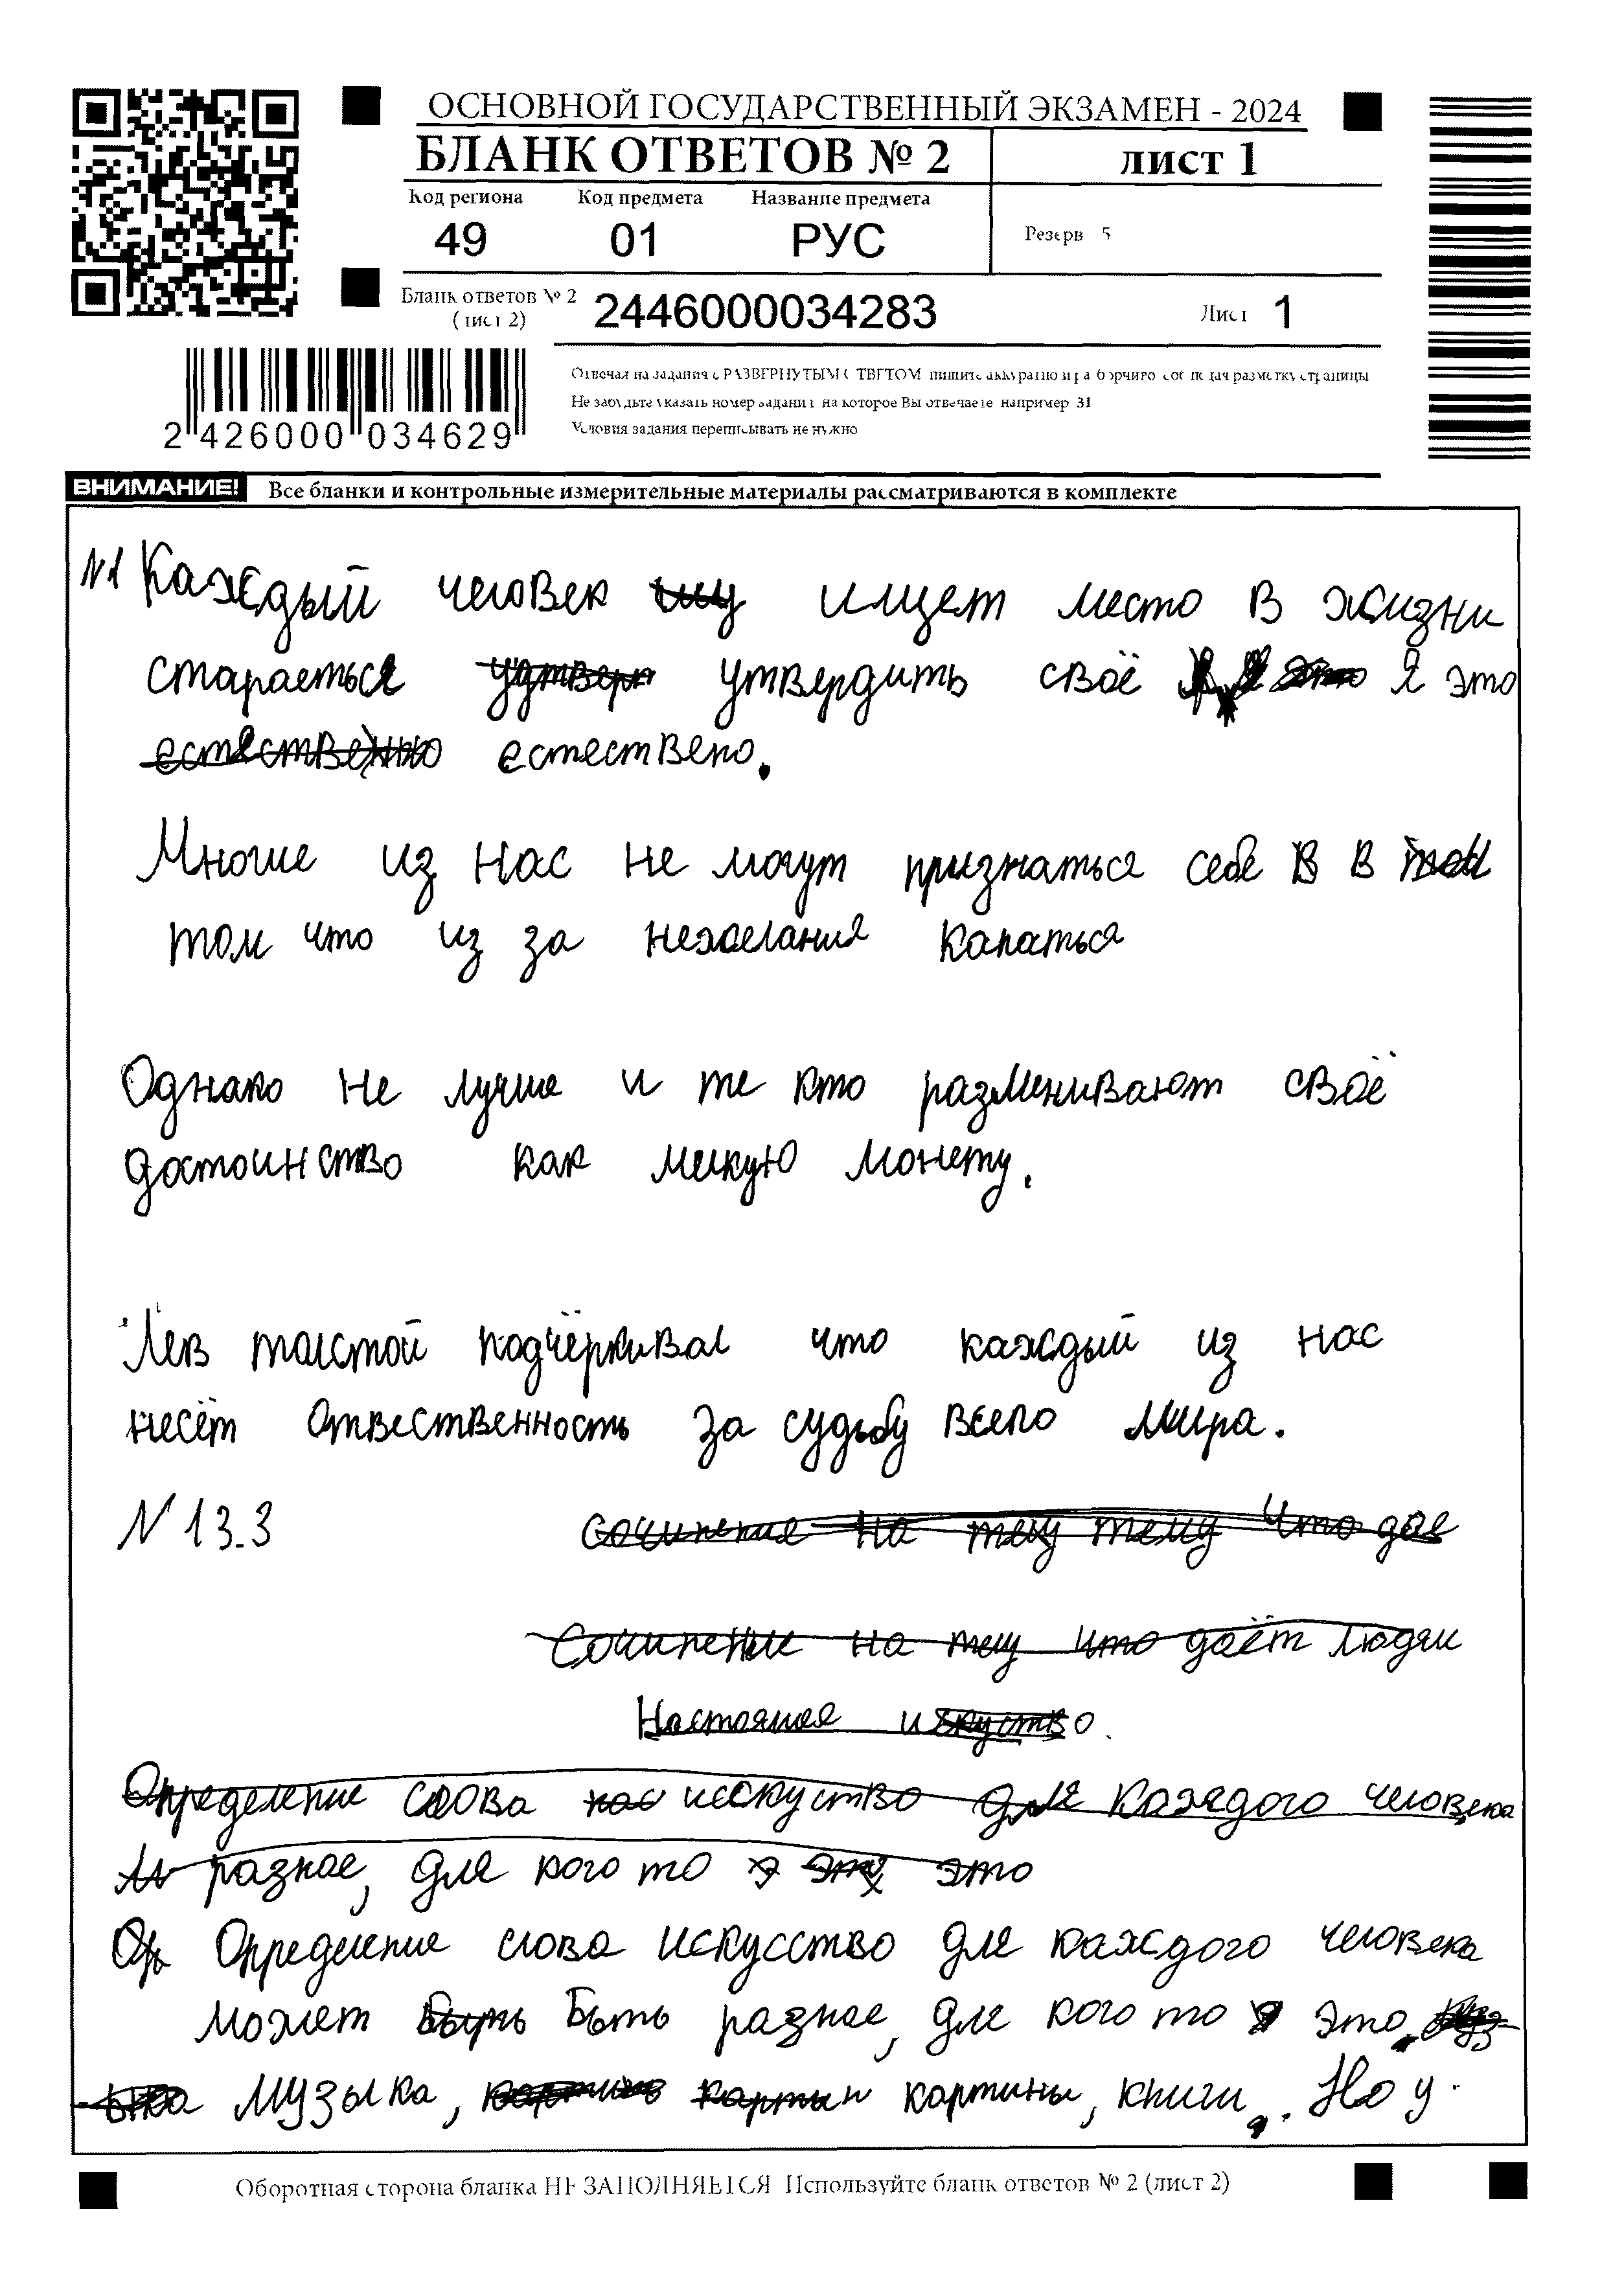 ОСНОВНОЙ ГОСУДАРСТВЕННЫЙ ЭКЗАМЕН - 2024
БЛАНК ОТВЕТОВ № 2 лист 1
Код региона Код предмета Название предмета
49 01 РУС Резерв 5
Бланк ответов № 2 (лист 2) 2446000034283 Лист 1
Отвечая на задания с РАЗВЕРНУТЫМ ОТВЕТОМ пишите аккуратно и разборчиво соблюдая разметку страницы
Не забудьте указать номер задания на которое Вы отвечаете например 31
Условия задания переписывать не нужно
2 426000 034629
ВНИМАНИЕ! Все бланки и контрольные измерительные материалы рассматриваются в комплекте
N1 Каждый человек ищет место в жизни
стараеться утвердить своё Я это
естествено.
Многие из нас не могут признаться себе в
том что из за нежелания капаться
Однако не лучше и те кто разменивают своё
достоинство как мелкую монету.
Лев толстой подчёркивал что каждый из нас
несёт отвественность за судьбу всего мира.
N 13.3 Сочинение на тему тему Что дае
Сочинение на тему что даёт людям
Настоящая искуство.
Определение слова исскуство для каждого человека
разное, для кого то это
Определение слова искусство для каждого человека
может быть разное, для кого то это
музыка, картины, книги. Но у
Оборотная сторона бланка НЕ ЗАПОЛНЯЕТСЯ Используйте бланк ответов № 2 (лист 2)